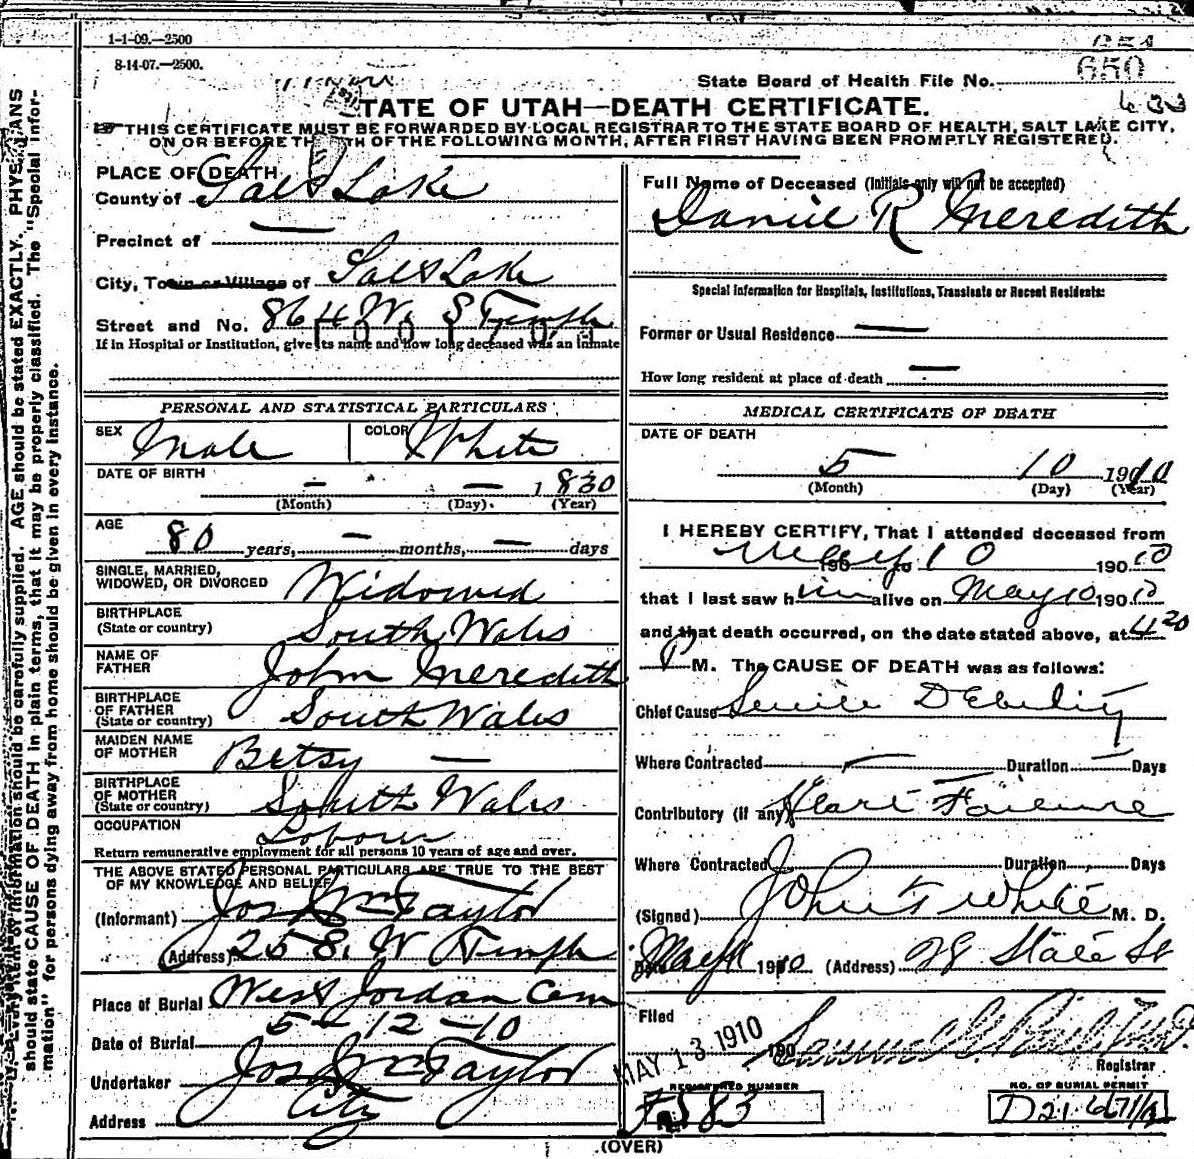 1-1-09.—2500
8-14-07.—2500.
State Board of Health File No. 650
633
STATE OF UTAH—DEATH CERTIFICATE.
THIS CERTIFICATE MUST BE FORWARDED BY LOCAL REGISTRAR TO THE STATE BOARD OF HEALTH, SALT LAKE CITY,
ON OR BEFORE TH TH OF THE FOLLOWING MONTH, AFTER FIRST HAVING BEEN PROMPTLY REGISTERED.
PLACE OF DEATH
County of Salt Lake
Precinct of —
City, Town or Village of Salt Lake
Street and No. 864 W. S Temple
If in Hospital or Institution, give its name and how long deceased was an inmate
Full Name of Deceased (Initials only will not be accepted)
Daniel R Meredith
Special Information for Hospitals, Institutions, Transients or Recent Residents:
Former or Usual Residence —
How long resident at place of death —
PERSONAL AND STATISTICAL PARTICULARS
SEX Male COLOR White
DATE OF BIRTH — — 1830
(Month) (Day). (Year)
AGE 80 years, — months, — days
SINGLE, MARRIED,
WIDOWED, OR DIVORCED Widowed
BIRTHPLACE
(State or country) South Wales
NAME OF
FATHER John Meredith
BIRTHPLACE
OF FATHER
(State or country) South Wales
MAIDEN NAME
OF MOTHER Betsy —
BIRTHPLACE
OF MOTHER
(State or country) South Wales
OCCUPATION Laborer
Return remunerative employment for all persons 10 years of age and over.
THE ABOVE STATED PERSONAL PARTICULARS ARE TRUE TO THE BEST
OF MY KNOWLEDGE AND BELIEF
(Informant) Jos Wm Taylor
(Address) 258. W Temple
Place of Burial West Jordan Cem
Date of Burial 5-12-10
Undertaker Jos Wm Taylor
Address City
MEDICAL CERTIFICATE OF DEATH
DATE OF DEATH
5 10 1910
(Month) (Day) (Year)
I HEREBY CERTIFY, That I attended deceased from
May 10 190 to 190 10
that I last saw him alive on May 10 190 10
and that death occurred, on the date stated above, at 4 20
P M. The CAUSE OF DEATH was as follows:
Chief Cause Senile Debility
Where Contracted — Duration — Days
Contributory (if any) Heart Failure
Where Contracted Duration Days
(Signed) John F White M. D.
Date May 11 1910 (Address) 28 State St
Filed
MAY 13 1910 190
Registrar
REGISTERED NUMBER
583
NO. OF BURIAL PERMIT
(OVER)
N. B.—Every item of information should be carefully supplied. AGE should be stated EXACTLY. PHYSICIANS
should state CAUSE OF DEATH in plain terms, that it may be properly classified. The "Special Infor-
mation" for persons dying away from home should be given in every instance.